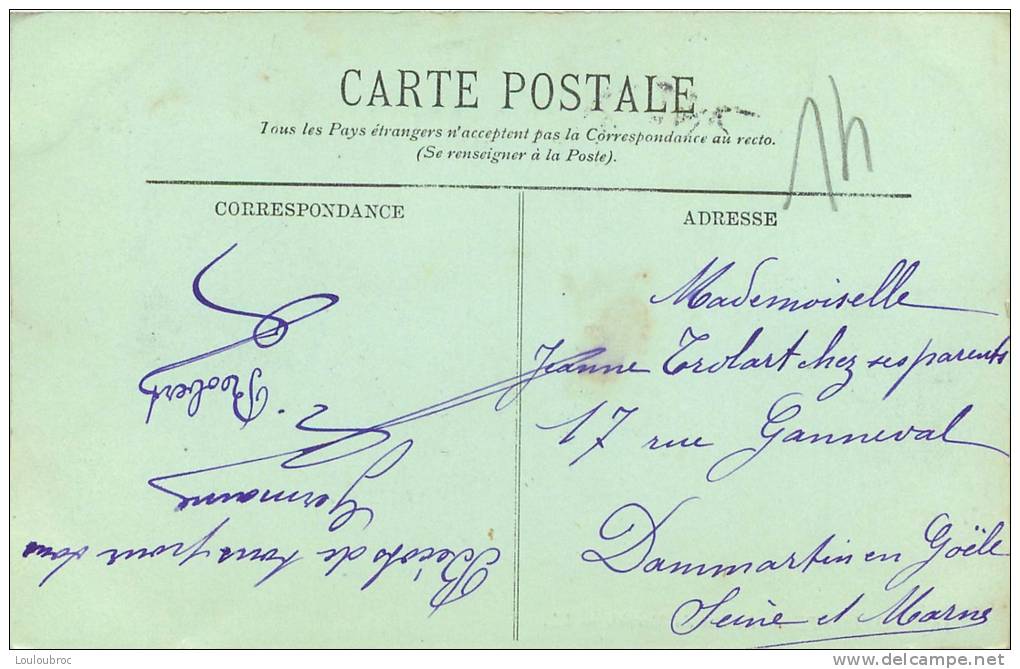 CARTE POSTALE
Tous les Pays étrangers n'acceptent pas la Correspondance au recto.
(Se renseigner à la Poste).
CORRESPONDANCE
de tous pour tous
Germaine
Robert
ADRESSE
Mademoiselle
Jeanne Trolart chez ses parents
17 rue Ganneval
Dammartin en Goële
Seine et Marne
Louloubroc
www.delcampe.net